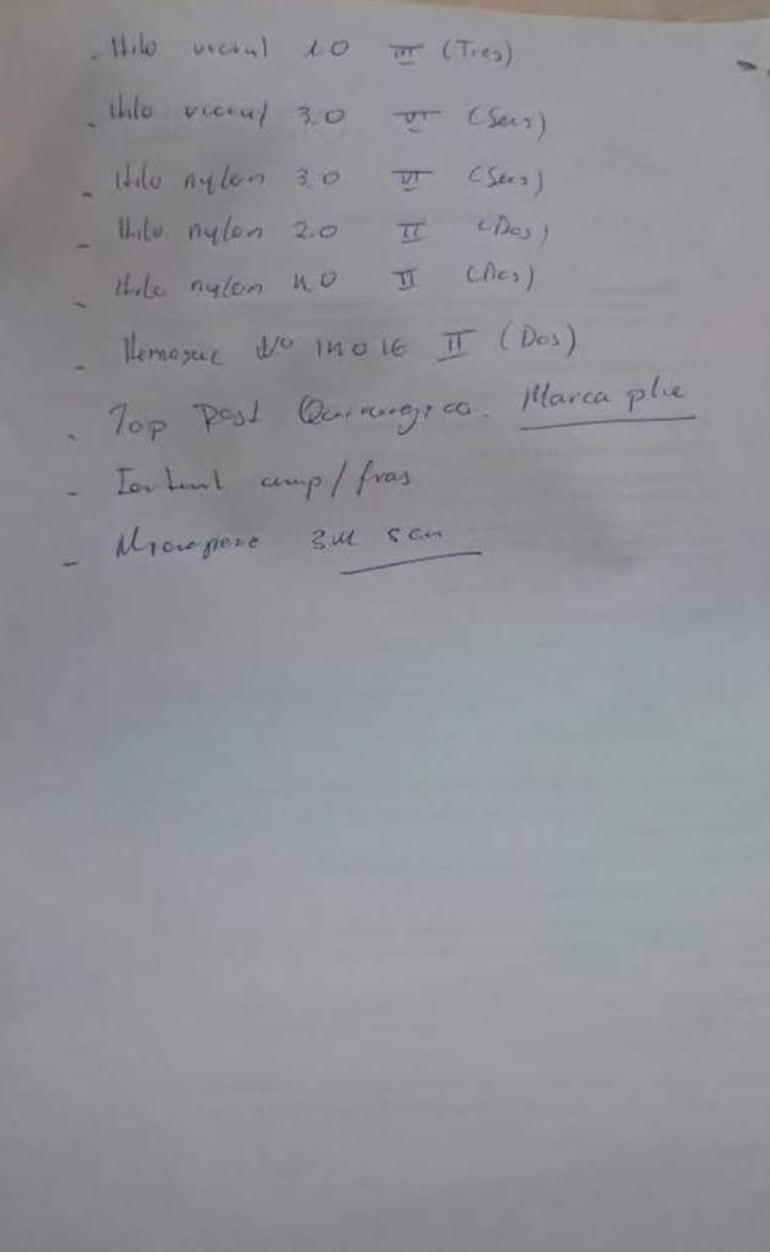 - Hilo vicryl 1.0 III (Tres)
- Hilo vicryl 3.0 VI (Seis)
- Hilo nylon 3.0 VI (Seis)
- Hilo nylon 2.0 II (Dos)
- Hilo nylon 4.0 II (Dos)
- Hemosuc Nº 14 o 16 II (Dos)
- Top Post Quirurgico. Marca plie
- amp/fras
- Micropore 3M 5cm